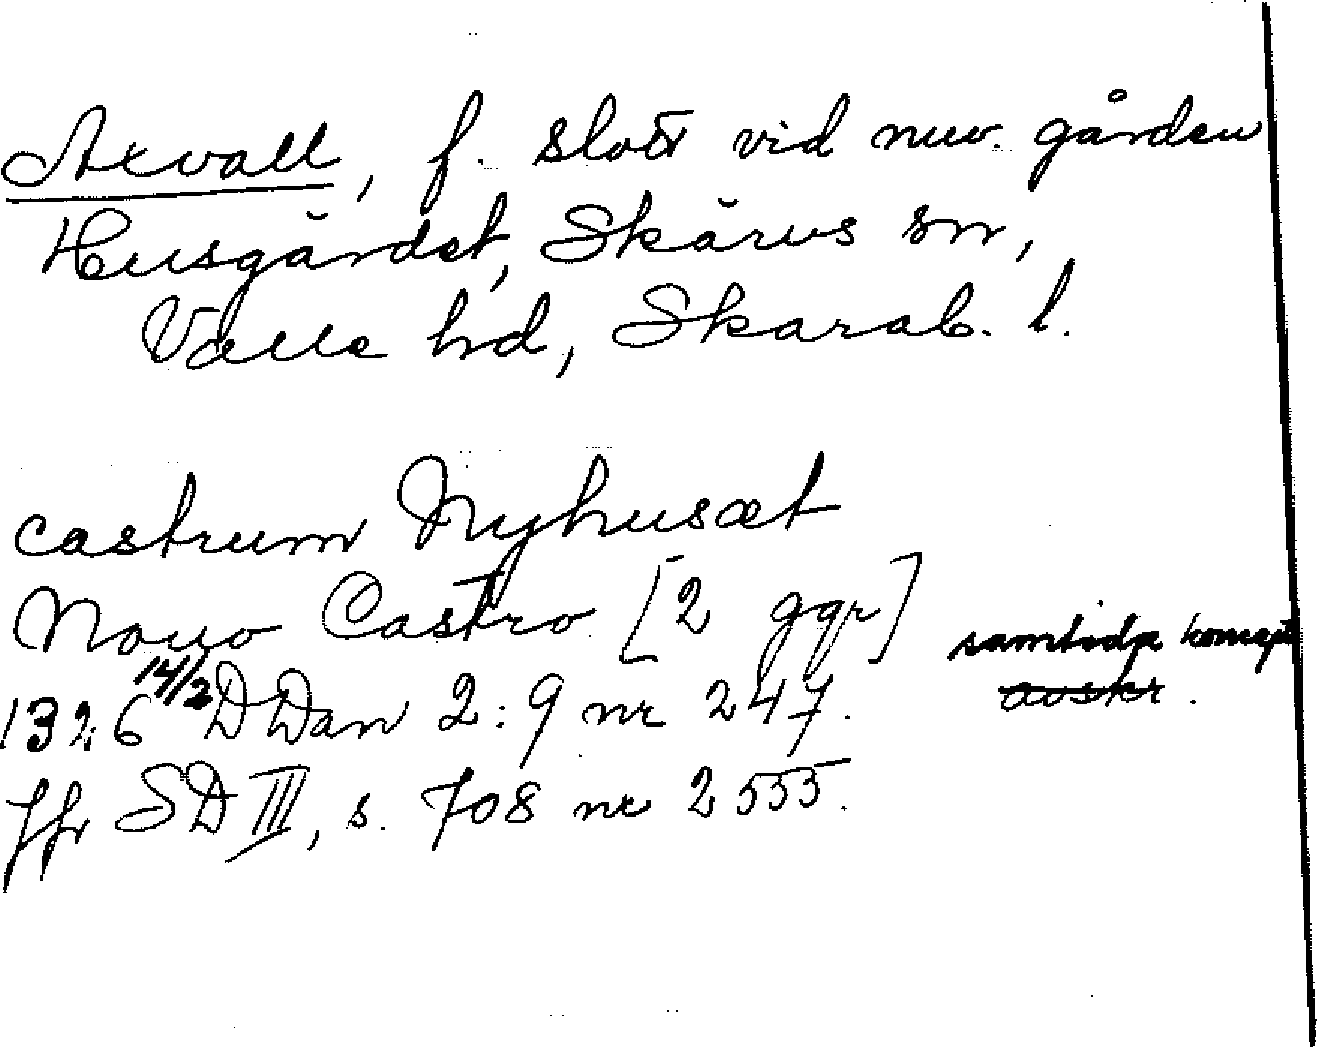 Axvall, f. slott vid nuv. gården
Husgärdet, Skärvs sn,
Valle hd, Skarab. l.
castrum Nyhusæt
Nouo Castro [2 ggr]
samtida koncept
1326 14/2 DDan 2:9 nr 247. avskr.
Jfr SD III, s. 708 nr 2555.